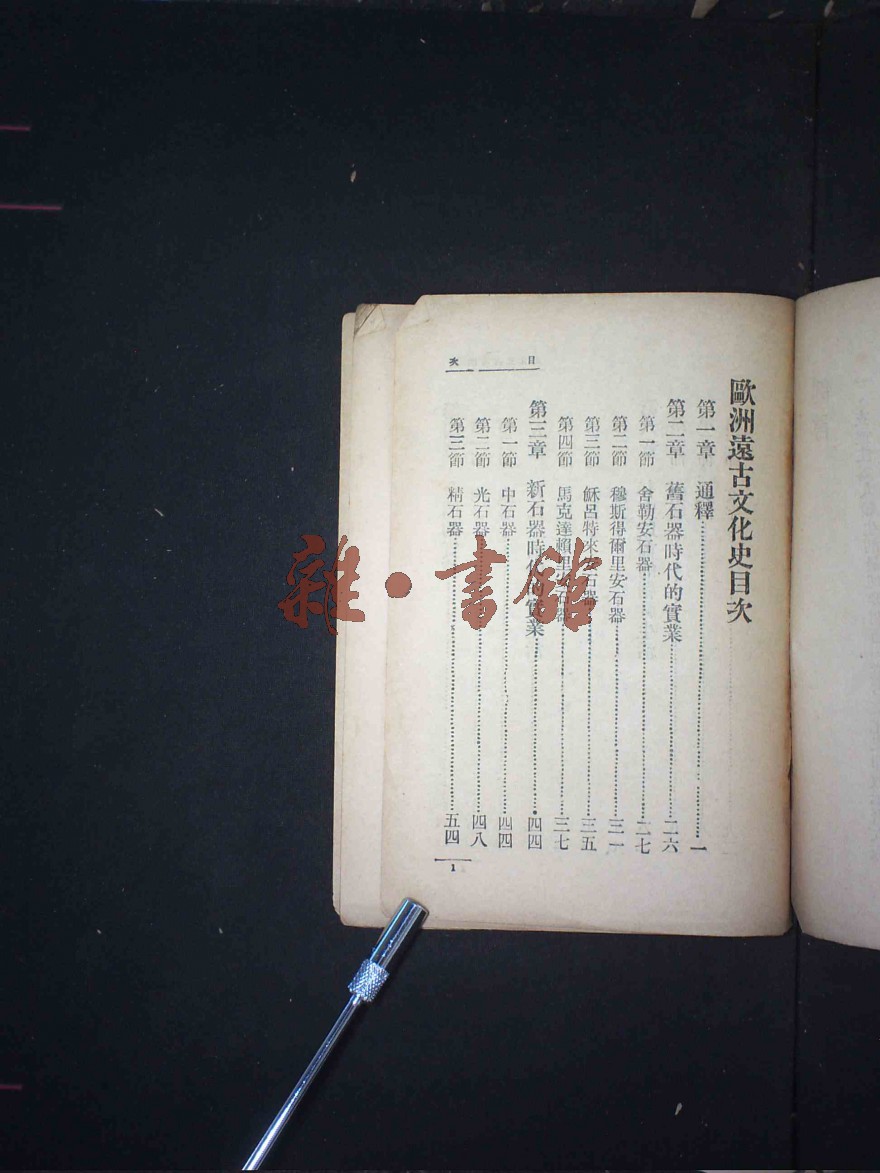 目次
歐洲遠古文化史目次
第一章 通釋……一
第二章 舊石器時代的實業……二六
第一節 舍勒安石器……二七
第二節 穆斯得爾里安石器……三一
第三節 穌呂特來石器……三五
第四節 馬克達賴里石器……三七
第三章 新石器時代的實業……四四
第一節 中石器……四四
第二節 光石器……四八
第三節 精石器……五四
1
雜·書館